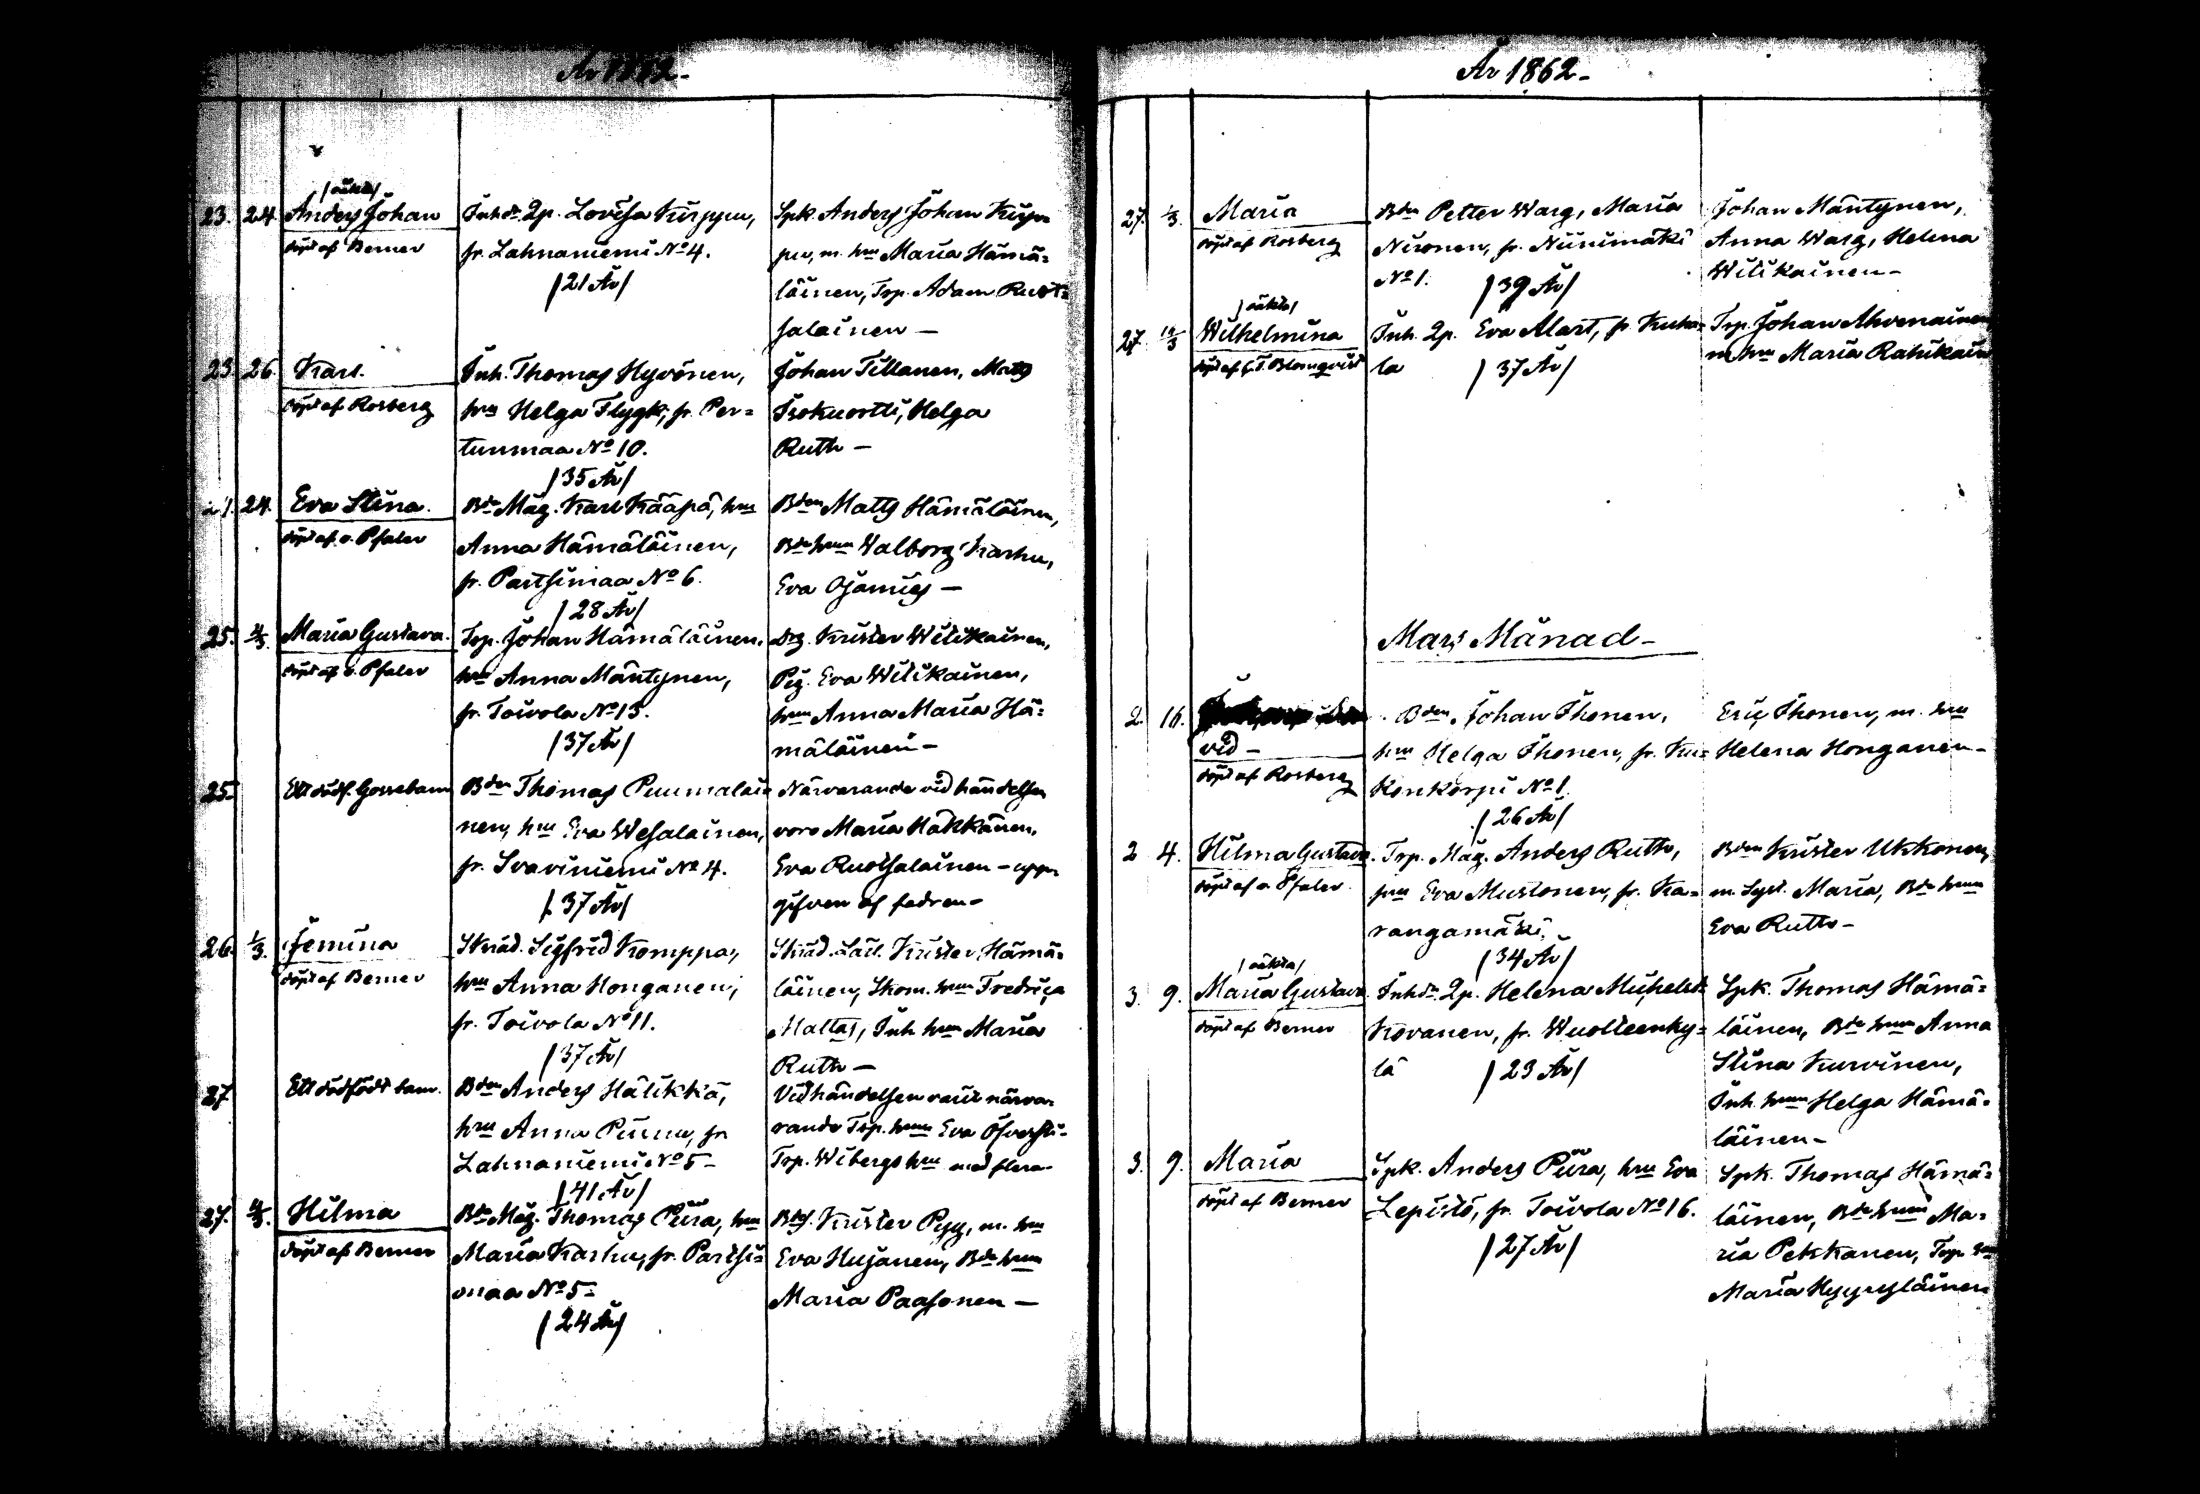 År 1862-
/oäkta/
23. 24. Anders Johan
döpt af Berner
Inhdr Qp. Lovisa Kurppu,
fr. Lahnaniemi No 4.
/21 År/
Spk. Anders Johan
m. hru Maria Hämä=
läinen, Trp. Adam Ruot=
salainen —
23. 26. Karl.
döpt af Rosberg
Inh. Thomas Hyvönen,
hru Helga Flygk, fr. Per=
tunmaa No 10.
/35 År/
Johan Tillanen, Matts
Isokuortti, Helga
Ruth —
24. Eva Stina.
döpt af v. Pfaler
Bde Måg. Karl Kääpä, hru
Anna Hämäläinen,
fr. Partsimaa No 6.
/28 År/
Bden Matts Hämäläinen,
Bde hrun Walborg Karhu,
Eva Ojanies —
25. Maria Gustava.
döpt af v. Pfaler
Trp. Johan Hämäläinen,
hru Anna Mäntynen,
fr. Toivola No 13.
/37 År/
Drg. Krister Wilikainen,
Pig. Eva Wilikainen,
hrun Anna Maria Hä=
mäläinen —
25. Ett dödf. Gossebarn
Bden Thomas Puumalai=
nen, hru Eva Wesalainen,
fr. Suoviniemi No 4.
/37 År/
Närvarande vid händelsen
voro Maria Häkkänen,
Eva Ruotsalainen - upp=
gifven af fadren-
26. 1/3. Jemina
döpt af Berner
Skräd. Sigfrid Komppa,
hru Anna Honganen,
fr. Toivola No 11.
/37 År/
Skräd. Lärl. Krister Hämä=
läinen, Skom. hru Fredrica
Maltas, Inh hru Maria
Ruth —
27. Ett dödfödt barn.
Bden Anders Hälikkä,
hru Anna Piunu, fr
Lahnaniemi No 5-
/41 År/
Vid händelsen varit närva=
rande Trp. hrun Eva
Trp. Wibergs hru med flera-
27. Hilma
döpt af Berner
Bde Måg. Thomas Piira, hru
Maria Karhu, fr. Partsi=
maa No 5-
/24 År/
Bdes. Krister Pyy, m. hru
Eva Hujanen, Bde hrun
Maria Paasonen —
År 1862-
27. 1/3. Maria
döpt af Rosberg
Bden Petter Warg, Maria
Nironen, fr. Niinimäki
No 1. /39 År/
Johan Mäntynen,
Anna Warg, Helena
Wilikainen-
/oäkta/
27. Wilhelmina
döpt af Blomqvist
Inh. Qp. Eva Alart, fr. Kuha=
la /37 År/
Trp. Johan Ahvenainen
m hru Maria Rahikain
Mars Månad-
2. 16.
vid-
döpt af Rosberg
Bden Johan Ihonen,
hru Helga Ihonen, fr. Kui=
konkorpi No 1.
/26 År/
Eric Ihonen, m. hru
Helena Honganen-
2 4. Hilma Gustava.
döpt af v. Pfaler.
Trp. Måg. Anders Ruth,
hru Eva Mustonen, fr. Ka=
rangamäki.
/34 År/
Bden Krister Ukkonen,
m. Syst. Maria, Bde hrun
Eva Ruth-
/oäkta/
3. 9. Maria Gustava.
döpt af Berner
Inhdr Qp. Helena
Kovanen, fr. Wuolteenky=
lä /23 År/
Spk. Thomas Hämä=
läinen, Bde hrun Anna
Stina Kurvinen,
Inh. hrun Helga Hämä=
läinen-
3. 9. Maria
döpt af Berner
Spk. Anders Piira, hru Eva
Lepistö, fr. Toivola No 16.
/27 År/
Spk. Thomas Hämä=
läinen, Bde hrun Ma=
ria Pekkanen, Trp. hru
Maria Hyyryläinen